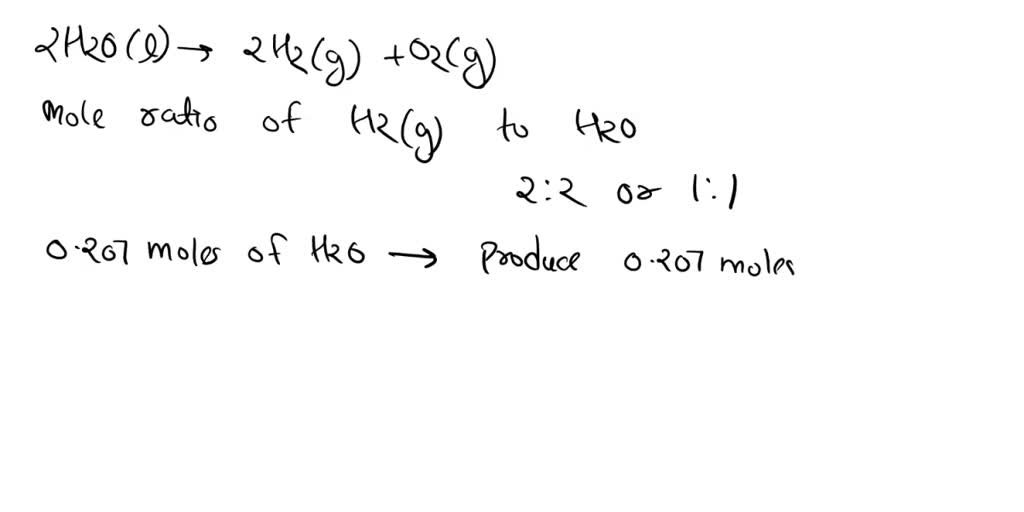 2H2O(l) → 2H2(g) + O2(g)
Mole ratio of H2(g) to H2O
2:2 or 1:1
0.207 moles of H2O → Produce 0.207 moles